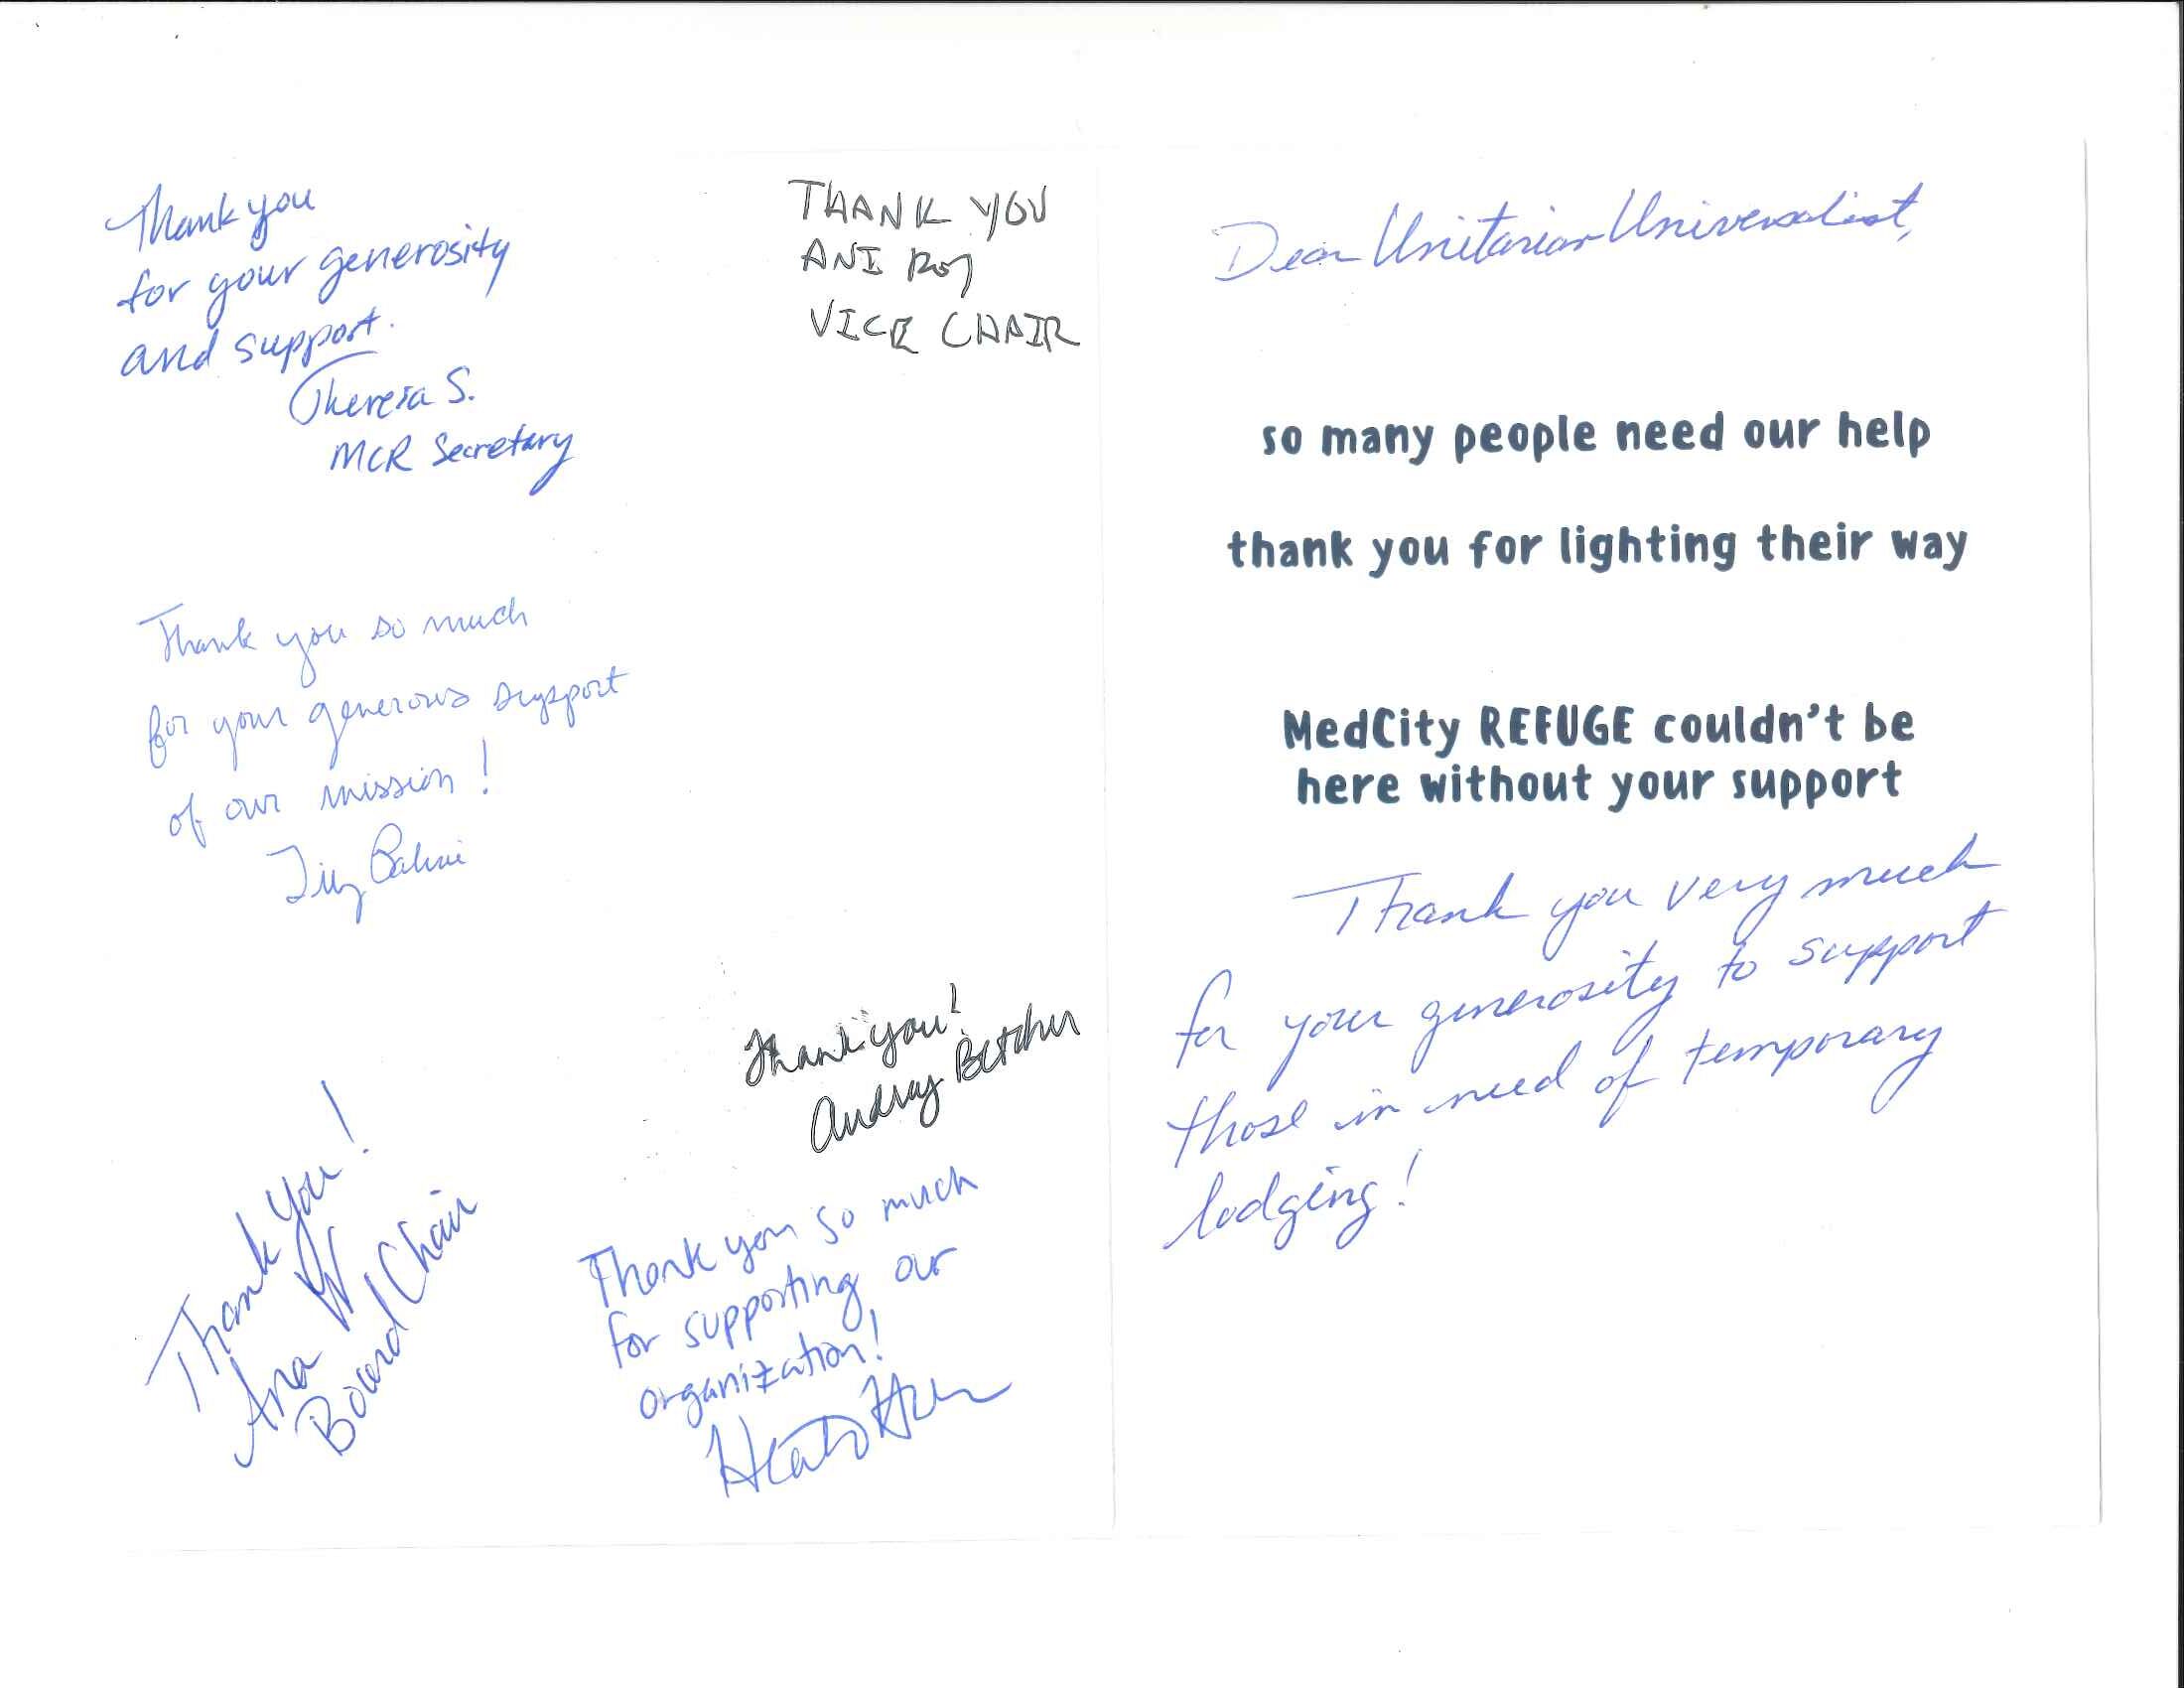 Thank you
for your generosity
and support.
Theresa S.
MCR Secretary
THANK YOU
ANI ROY
VICE CHAIR
Thank you so much
for your generous support
of our mission!
Thank you!
Audrey Betcher
Thank You!
Ana W
Board Chair
Thank you so much
for supporting our
organization!
Dear Unitarian Universalist,
so many people need our help
thank you for lighting their way
MedCity REFUGE couldn't be
here without your support
Thank you very much
for your generosity to support
those in need of temporary
lodging!